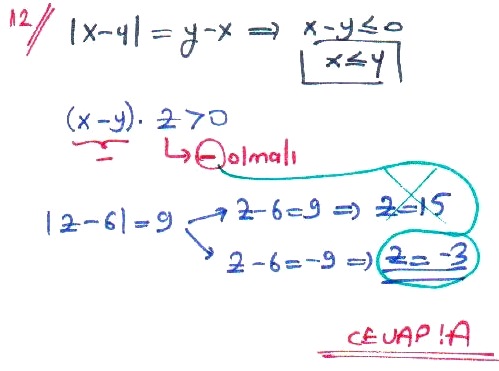 12/ |x-y| = y-x ⇒ x-y≤0
x≤y
(x-y). z>0
- → - olmalı
|z-6|=9 → z-6=9 ⇒ z=15
→ z-6=-9 ⇒ z=-3
CEVAP!A